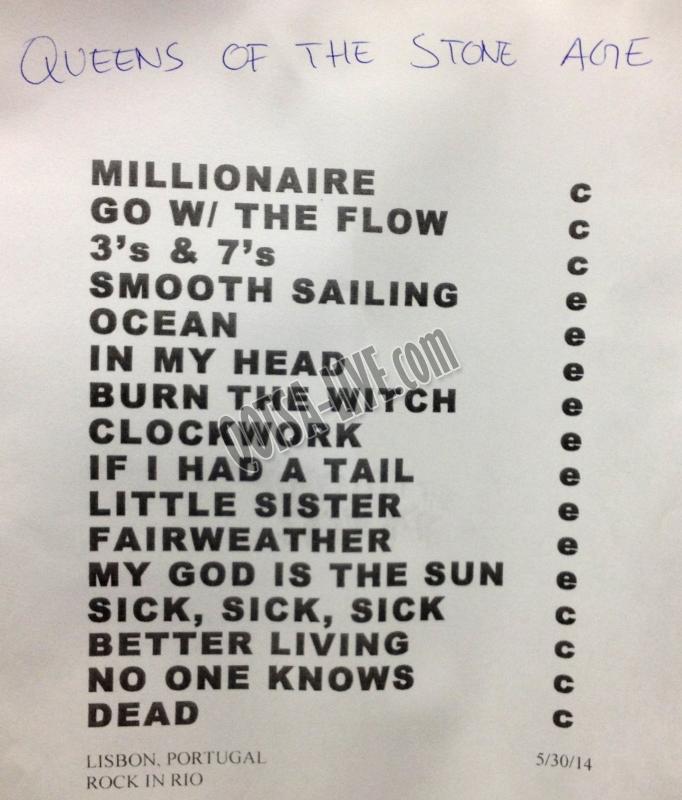 QUEENS OF THE STONE AGE
MILLIONAIRE c
GO W/ THE FLOW c
3's & 7's c
SMOOTH SAILING e
OCEAN e
IN MY HEAD e
BURN THE WITCH e
CLOCKWORK e
IF I HAD A TAIL e
LITTLE SISTER e
FAIRWEATHER e
MY GOD IS THE SUN e
SICK, SICK, SICK c
BETTER LIVING c
NO ONE KNOWS c
DEAD c
LISBON, PORTUGAL 5/30/14
ROCK IN RIO
QOTSA-LIVE.com